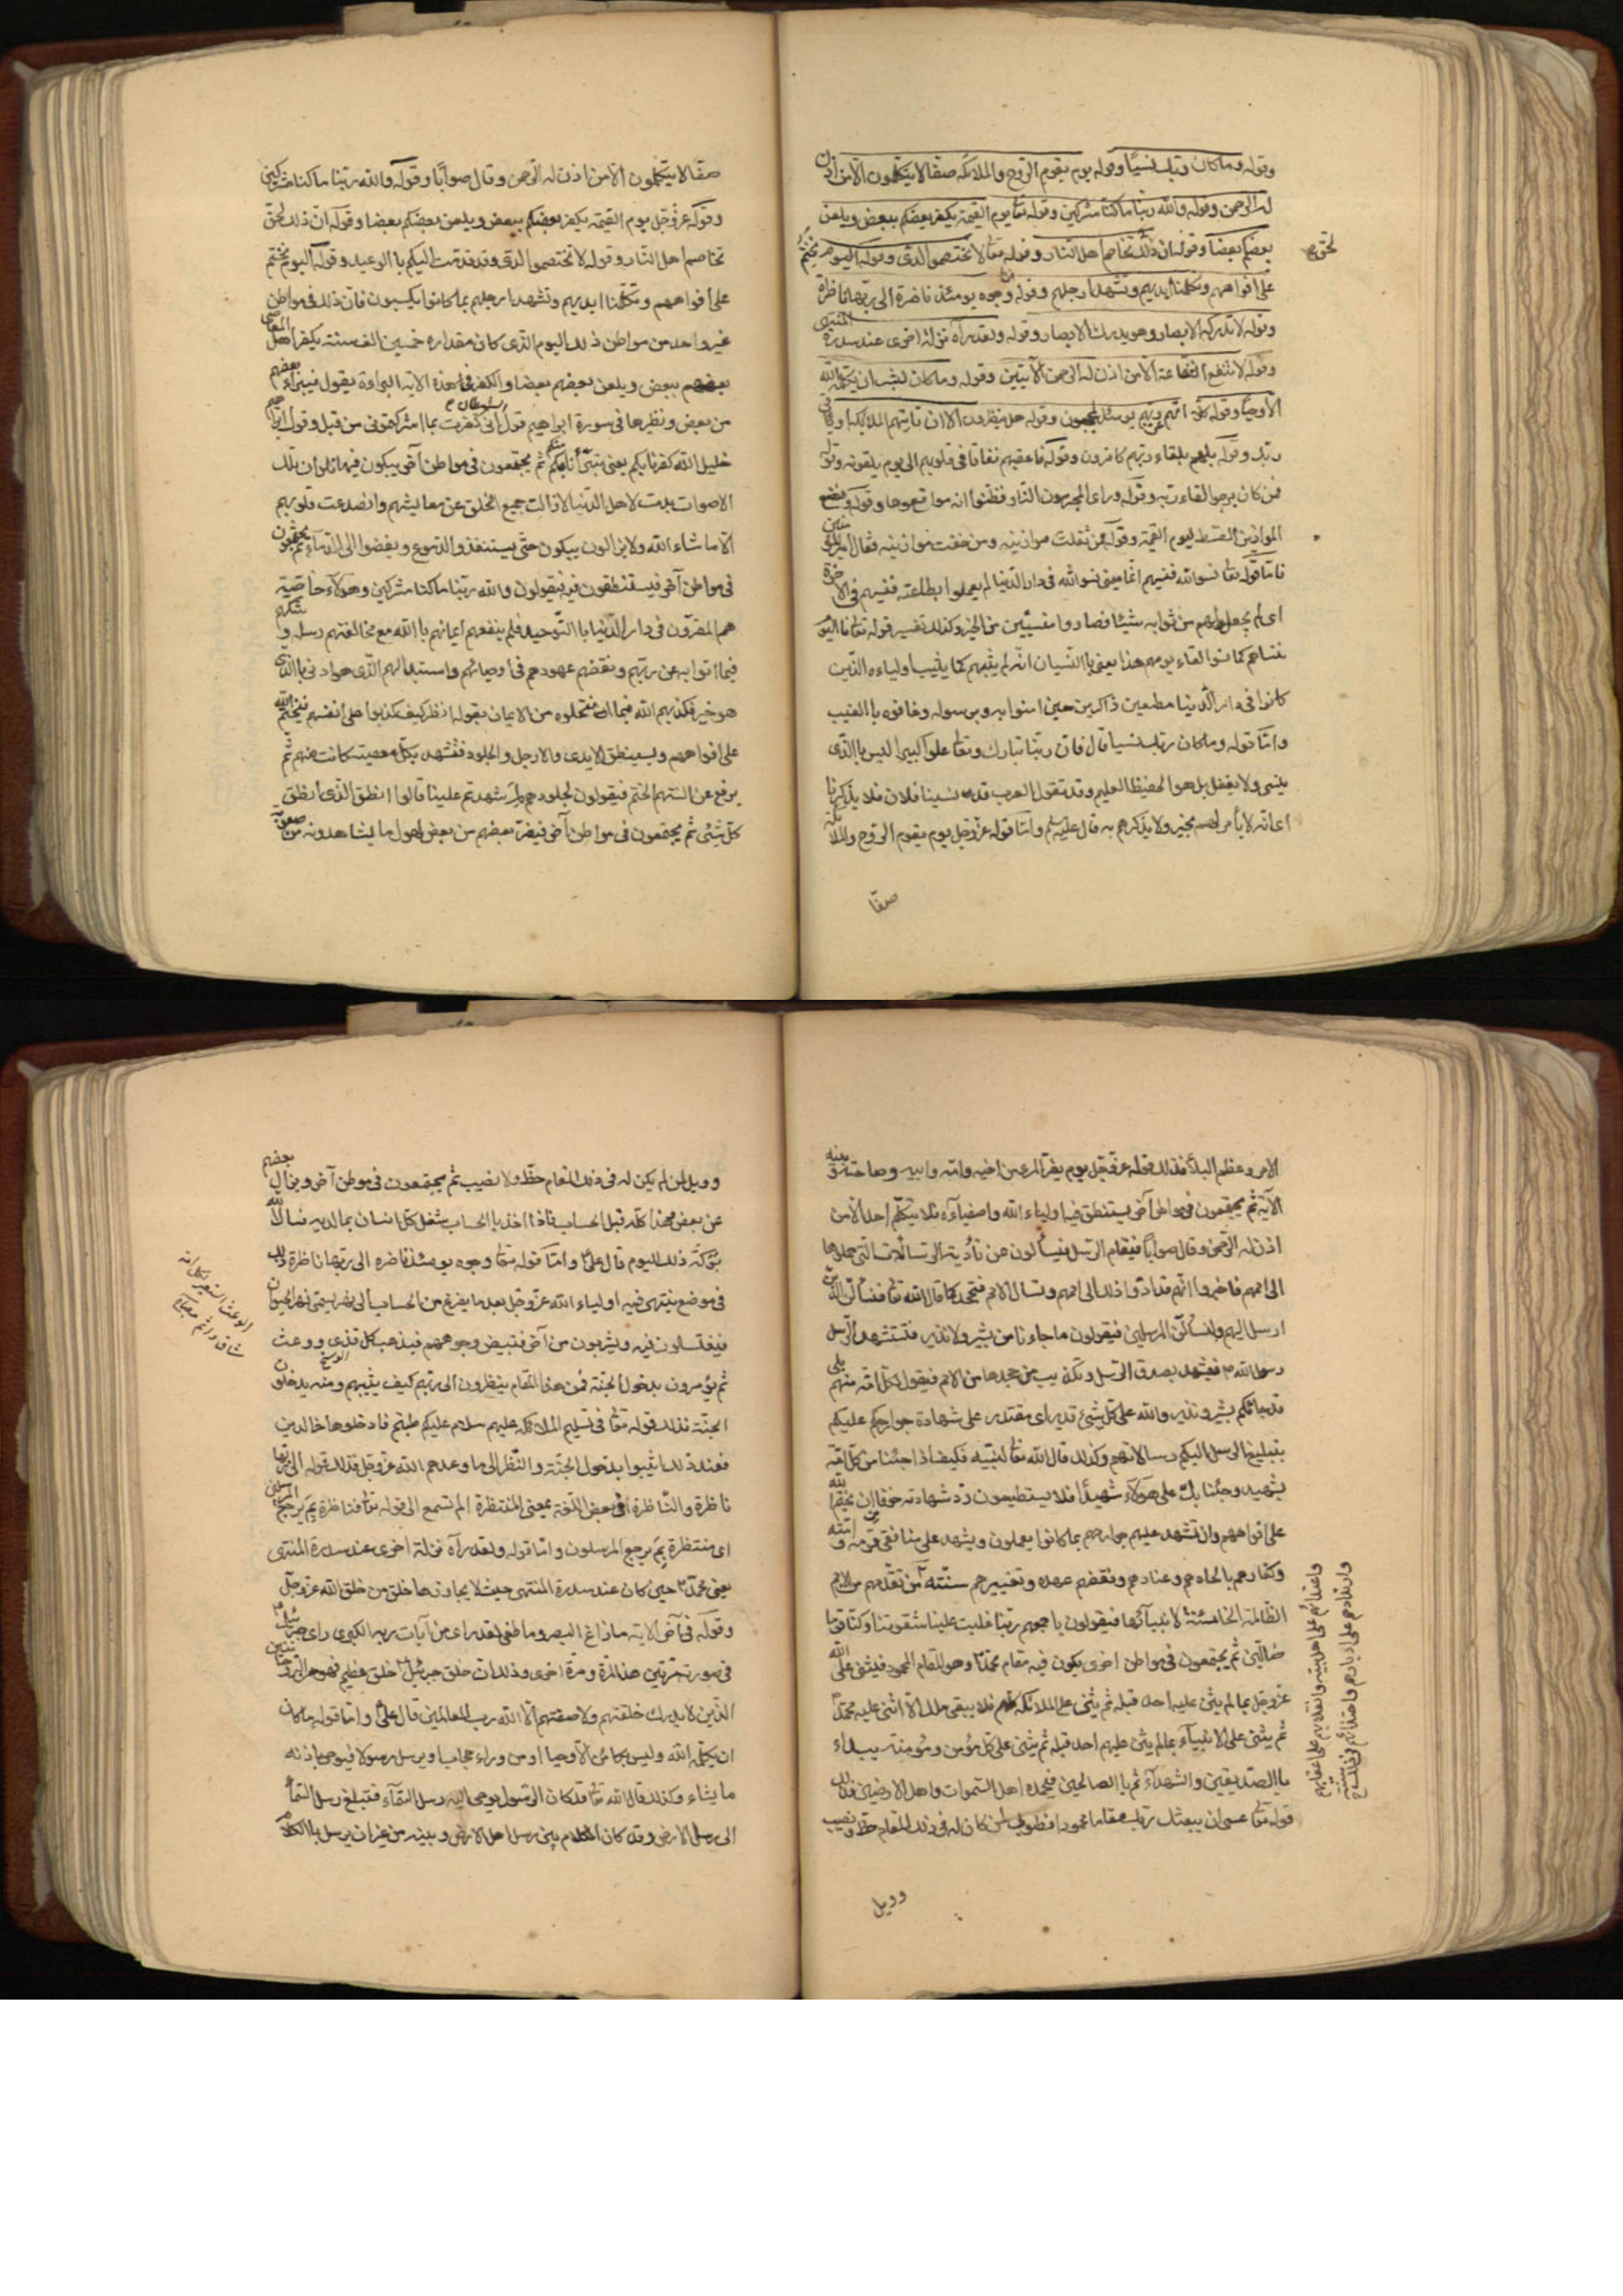 وقوله وما كان ربك نسيا وقوله يوم يقوم الروح والملائكة صفا لا يتكلمون الا من اذن
له الرحمن وقوله والله ربنا ما كنا مشركين وقوله تعا يوم القيمة يكفر بعضكم ببعض ويلعن
بعضكم بعضا وقوله ان ذلك تخاصم اهل النار وقوله تعا لا تختصموا لدى وقوله اليوم نختم
لحق
على افواههم وتكلمنا ايديهم وتشهد ارجلهم وقوله وجوه يومئذ ناضرة الى ربها ناظرة
وقوله لا تدركه الابصار وهو يدرك الابصار وقوله ولقد رآه نزلة اخرى عند سدرة المنتهى
وقوله لا تنفع الشفاعة الا من اذن له الرحمن الآيتين وقوله وما كان لبشر ان يكلمه الله
الا وحيا وقوله كلا انهم عن ربهم يومئذ لمحجوبون وقوله هل ينظرون الا ان تاتيهم الملائكة او ياتى
ربك وقوله بل هم بلقاء ربهم كافرون وقوله فاعقبهم نفاقا فى قلوبهم الى يوم يلقونه وقوله
فمن كان يرجوا لقاء ربه وقوله وراى المجرمون النار فظنوا انهم مواقعوها وقوله ونضع
الموازين القسط ليوم القيمة وقوله فمن ثقلت موازينه ومن خفت موازينه فقال امير المؤمنين
فاما قوله تعا نسوا الله فنسيهم انما يعنى نسوا الله فى دار الدنيا لم يعملوا بطاعته فنسيهم فى الآخرة
اى لم يجعل لهم من ثوابه شيئا فصاروا منسيين من الخير وكذلك تفسير قوله تعا فاليوم
ننساهم كما نسوا لقاء يومهم هذا يعنى باالنسيان انه لم يثبهم كما يثيب اولياءه الذين
كانوا فى دار الدنيا مطيعين ذاكرين حين امنوا به وبرسوله وخافوه باالغيب
واما قوله وما كان ربك نسيا قال فان ربنا تبارك وتعا علوا كبيرا ليس باالذى
ينسى ولا يغفل بل هو الحفيظ العليم وقد تقول العرب قد نسينا فلان فلا يذكرنا
اى انه لا يأمر لهم بخير ولا يذكرهم به قال عليه السلم واما قوله عز وجل يوم يقوم الروح والملائكة
صفا
صفا لا يتكلمون الا من اذن له الرحمن وقال صوابا وقوله والله ربنا ما كنا مشركين
وقوله عز وجل يوم القيمة يكفر بعضكم ببعض ويلعن بعضكم بعضا وقوله ان ذلك لحق
تخاصم اهل النار وقوله لا تختصموا لدى وقد قدمت اليكم باالوعيد وقوله اليوم نختم
على افواههم وتكلمنا ايديهم وتشهد ارجلهم بما كانوا يكسبون فان ذلك فى مواطن
غير واحد من مواطن ذلك اليوم الذى كان مقداره خمسين الف سنة يكفر اهل المعاصى
بعضهم ببعض ويلعن بعضهم بعضا والكفر فى هذه الآية البراءة يقول فيبرأ بعضهم
من بعض ونظيرها فى سورة ابراهيم قول الشيطان انى كفرت بما اشركتمونى من قبل وقول ابراهيم
خليل الله كفرنا بكم يعنى تبرأنا منكم ثم يجتمعون فى مواطن آخر يبكون فيها فلو ان تلك
الاصوات بدت لاهل الدنيا لازالت جميع الخلق عن معايشهم وانصدعت قلوبهم
الا ما شاء الله ولا يزالون يبكون حتى يستنفذوا الدموع ويفضوا الى الدماء ثم يجتمعون
فى مواطن آخر فيستنطقون فيه فيقولون والله ربنا ما كنا مشركين وهؤلاء خاصة
هم المقرون فى دار الدنيا باالتوحيد فلم ينفعهم ايمانهم باالله مع مخالفتهم رسله وشكهم
فيما اتوا به عن ربهم ونقضهم عهودهم فى اوصيائهم واستبدالهم الذى هو ادنى باالذى
هو خير فكذبهم الله فيما انتحلوه من الايمان بقوله انظر كيف كذبوا على انفسهم فيختم الله
على افواههم ويستنطق الايدى والارجل والجلود فتشهد بكل معصية كانت منهم ثم
يرفع عن السنتهم الختم فيقولون لجلودهم لم شهدتم علينا قالوا انطقنا الذى انطق
كل شئ ثم يجتمعون فى مواطن آخر فيفر بعضهم من بعض لهول ما يشاهدونه من صعوبة
الامر وعظم البلاء فذلك قوله عز وجل يوم يفر المرء من اخيه وامه وابيه وصاحبته وبنيه
الآية ثم يجتمعون فى مواطن آخر يستنطق فيه اولياء الله واصفياءه فلا يتكلم احد الا من
اذن له الرحمن وقال صوابا فيقام الرسل فيسألون عن تأدية الرسالات التى حملوها
الى اممهم فاخبروا انهم قد ادوا ذلك الى اممهم وتسال الامم فتجحد كما قال الله تعا فلنسألن الذين
ارسل اليهم ولنسألن المرسلين فيقولون ما جاءنا من بشير ولا نذير فتستشهد الرسل
رسول الله ص فيشهد بصدق الرسل وتكذيب من جحدها من الامم فيقول لكل امة منهم بلى
قد جاءكم بشير ونذير والله على كل شئ قدير اى مقتدر على شهادة جوارحكم عليكم
بتبليغ الرسل اليكم رسالاتهم وكذلك قال الله تعا لنبيه فكيف اذا جئنا من كل امة
بشهيد وجئنا بك على هؤلاء شهيدا فلا يستطيعون رد شهادته خوفا ان يختم الله
على افواههم وان تشهد عليهم جوارحهم بما كانوا يعملون ويشهد على منافقى قومه وامته
وكفارهم بالحادهم وعنادهم ونقضهم عهده وتغييرهم سنته
واعتدائهم على اهل بيته وانقلابهم على اعقابهم
وارتدادهم على ادبارهم واحتذائهم فى ذلك سنة
من تقدمهم من الامم
الظالمة الخائنة لانبيآئها فيقولون باجمعهم ربنا غلبت علينا شقوتنا وكنا قوما
ضالين ثم يجتمعون فى مواطن اخرى يكون فيه مقام محمد وهو المقام المحمود فيثنى على الله
عز وجل بما لم يثن عليه احد قبله ثم يثنى على الملائكة كلهم فلا يبقى ملك الا اثنى عليه محمد
ثم يثنى على الانبياء بما لم يثن عليهم احد قبله ثم يثنى على كل مؤمن ومؤمنة يبداء
باالصديقين والشهداء ثم باالصالحين فيحمده اهل السموات واهل الارضين فذلك
قوله تعا عسى ان يبعثك ربك مقاما محمودا فطوبى لمن كان له فى ذلك المقام حظ ونصيب
وويل
وويل لمن لم يكن له فى ذلك المقام حظ ولا نصيب ثم يجتمعون فى موطن آخر ويزال بعضهم
عن بعض وهذا كله قبل الحساب فاذا اخذ باالحساب شغل كل انسان بما لديه نسال الله
بركة ذلك اليوم قال على واما قوله تعا وجوه يومئذ ناضرة الى ربها ناظرة ذلك
فى موضع ينتهى فيه اولياء الله عز وجل بعد ما يفرغ من الحساب الى نهر يسمى نهر الحيوان
فيغتسلون فيه ويشربون من آخر فتبيض وجوههم فيذهب كل قذى ووعث
الوسخ
ثم يؤمرون بدخول الجنة فمن هذا المقام ينظرون الى ربهم كيف يثيبهم ومنه يدخلون
الجنة فذلك قوله تعا فى تسليم الملائكة عليهم سلام عليكم طبتم فادخلوها خالدين
فعند ذلك اثيبوا بدخول الجنة والنظر الى ما وعدهم الله عز وجل فذلك قوله الى ربها
ناظرة والناظرة فى بعض اللغة بمعنى المنتظرة الم تسمع الى قوله تعا فناظرة بم يرجع المرسلون
اى منتظرة بم يرجع المرسلون واما قوله ولقد رآه نزلة اخرى عند سدرة المنتهى
يعنى محمد حين كان عند سدرة المنتهى حيث لا يجاوزها خلق من خلق الله عز وجل
وقوله فى آخر الآية ما زاغ البصر وما طغى لقد راى من آيات ربه الكبرى راى جبرئيل
فى صورته مرتين هذه المرة ومرة اخرى وذلك ان خلق جبرئيل خلق عظيم فهو من الروحانيين
الذين لا يدرك خلقتهم ولا صفتهم الا الله رب العالمين قال على واما قوله ما كان
ان يكلمه الله وليس بكائن الا وحيا او من وراء حجاب او يرسل رسولا فيوحى باذنه
ما يشاء وكذلك قال الله تعا قد كان الرسول يوحى اليه رسل السماء فتبلغ رسل السماء
الى رسل الارض وقد كان الكلام بين رسل اهل الارض وبينه من غير ان يرسل باالكلام